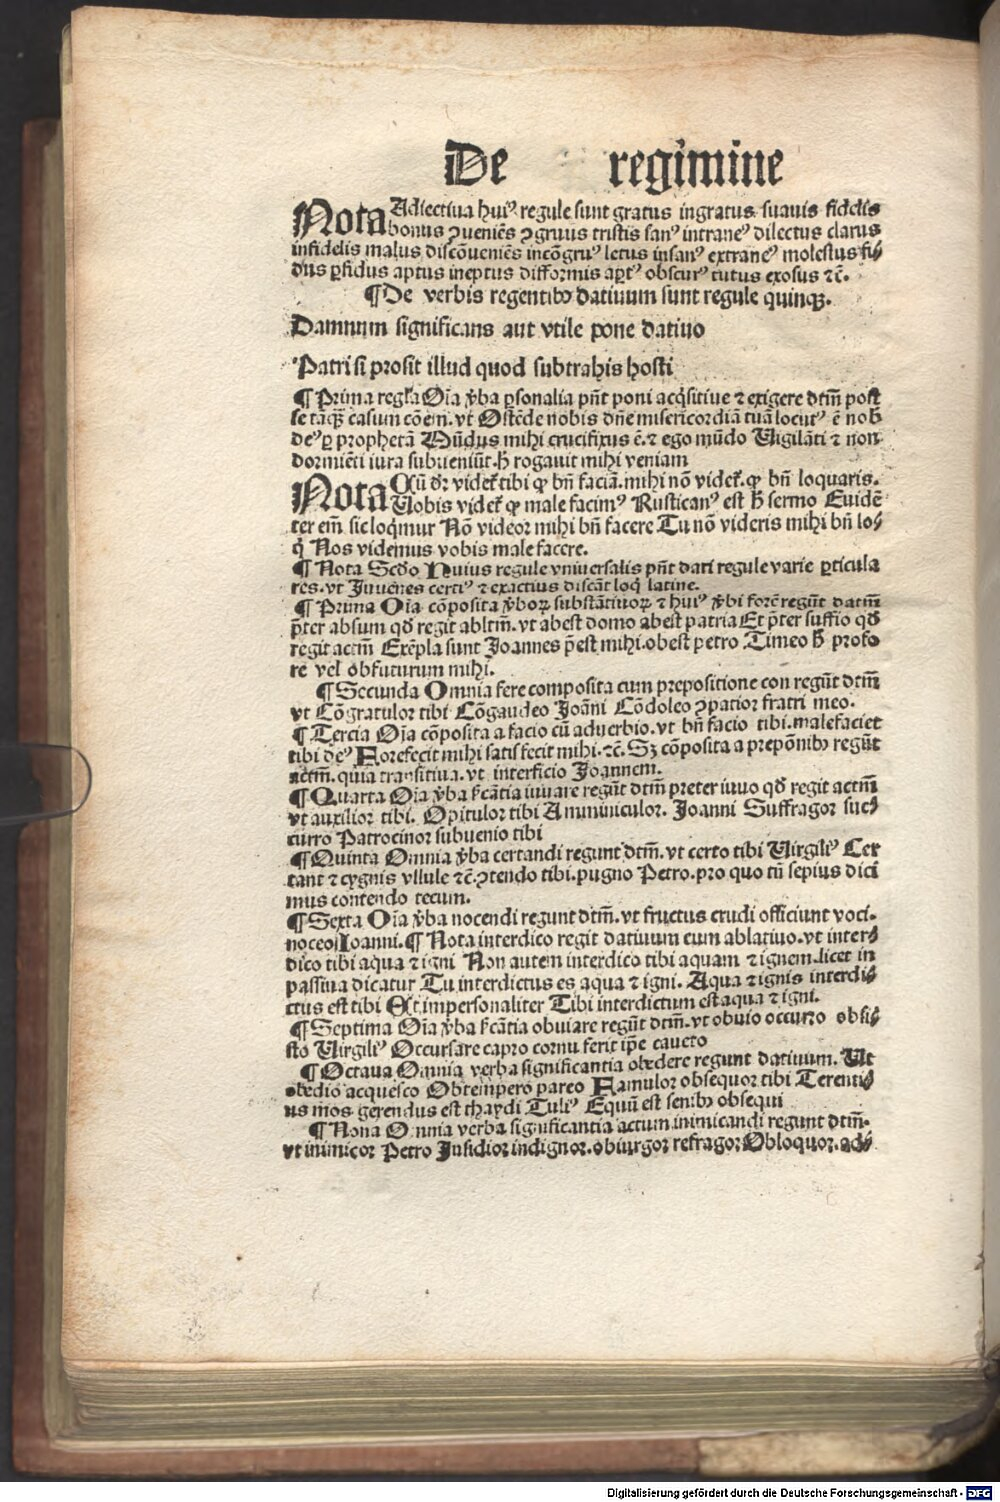 De regimine
Nota Adiectiua huiꝰ regule sunt gratus ingratus suauis fidelis
bonus ꝯueniẽs ꝯgruus tristis sanꝰ intraneꝰ dilectus clarus
infidelis malus discõueniẽs incõgruꝰ letus insanꝰ extraneꝰ molestus fi⸗
dus ꝑfidus aptus ineptus difformis aꝑtꝰ obscurꝰ tutus exosus ⁊c̃.
¶ De verbis regentibꝰ datiuum sunt regule quinqꝫ.
Damnum significans aut vtile pone datiuo
Patri si prosit illud quod subtrahis hosti
¶ Prima regl̃a Oĩa v̾ba ꝑsonalia pñt poni acq̃sitiue ⁊ exigere dtm̃ post
se tãqꝫ casum cõem. vt Ostẽde nobis dñe misericordiã tuã locutꝰ ẽ nob̾
deꝰ ꝑ prophetã Mũdus mihi crucifixus ẽ. ⁊ ego mũdo Uigilãti ⁊ non
dormiẽti iura subueniũt. h̾ rogauit mihi veniam
Nota Cũ dr̃ videt̃ tibi ꝙ bñ faciã. mihi nõ videt̃. ꝙ bñ loquaris.
Uobis videt̃ ꝙ male facimꝰ Rusticanꝰ est h̾ sermo Euidẽ
ter eĩm sic loq̃mur Nõ videor mihi bñ facere Tu nõ videris mihi bñ lo⸗
q̃ Nos videmus vobis male facere.
¶ Nota Scd̾o Huius regule vniuersalis pñt dari regule varie ꝑticula
res. vt Iuuẽnes certiꝰ ⁊ exactius discãt loq̃ latine.
¶ Prima Oĩa cõposita v̾boꝝ substãtiuoꝝ ⁊ huiꝰ v̾bi forẽ regũt datm̃
p̃ter absum qd̾ regit abltm̃. vt abest domo abest patria Et p̃ter suffio qd̾
regit actm̃ Exẽpla sunt Joannes p̃est mihi. obest petro Timeo h̾ profo
re vel obfuturum mihi.
¶ Secunda Omnia fere composita cum prepositione con regũt dtm̃
vt Cõgratulor tibi Cõgaudeo Joãni Cõdoleo ꝯpatior fratri meo.
¶ Tercia Oĩa cõposita a facio cũ aduerbio. vt bñ facio tibi. malefaciet
tibi deꝰ Forefecit mihi satisfecit mihi. ⁊c̃. Sꝫ cõposita a prepõnibꝰ regũt
actm̃. quia transitiua. vt interficio Joannem.
¶ Quarta Oĩa v̾ba s̾cãtia iuuare regũt dtm̃ preter iuuo qd̾ regit actm̃
vt auxilior tibi. Opitulor tibi Amminiculor. Joanni Suffragor suc⸗
curro Patrocinor subuenio tibi
¶ Quinta Omnia v̾ba certandi regunt dtm̃. vt certo tibi Uirgiliꝰ Cer
tant ⁊ cygnis vllule ⁊c̃. ꝯtendo tibi. pugno Petro. pro quo tñ sepius dici
mus contendo tecum.
¶ Sexta Oĩa v̾ba nocendi regunt dtm̃. vt fructus crudi officiunt voci.
noceo Joanni. ¶ Nota interdico regit datiuum cum ablatiuo. vt inter⸗
dico tibi aqua ⁊ igni Non autem interdico tibi aquam ⁊ ignem. licet in
passiua dicatur Tu interdictus es aqua ⁊ igni. Aqua ⁊ ignis interdi⸗
ctus est tibi Et impersonaliter Tibi interdictum est aqua ⁊ igni.
¶ Septima Oĩa v̾ba s̾cãtia obuiare regũt dtm̃. vt obuio occurro obsi⸗
sto Uirgiliꝰ Occursare capro cornu ferit ip̃e caueto
¶ Octaua Omnia verba significantia obedere regunt datiuum. Ut
obedio acquesco Obtempero pareo Famulor obsequor tibi Terenti⸗
us mos gerendus est thaydi Tuliꝰ Equũ est senibꝰ obsequi
¶ Nona Omnia verba significantia actum inimicandi regunt dtm̃.
vt inimicor Petro Insidior indignor. obiurgor refragor Obloquor. ad⸗
Digitalisierung gefördert durch die Deutsche Forschungsgemeinschaft - DFG